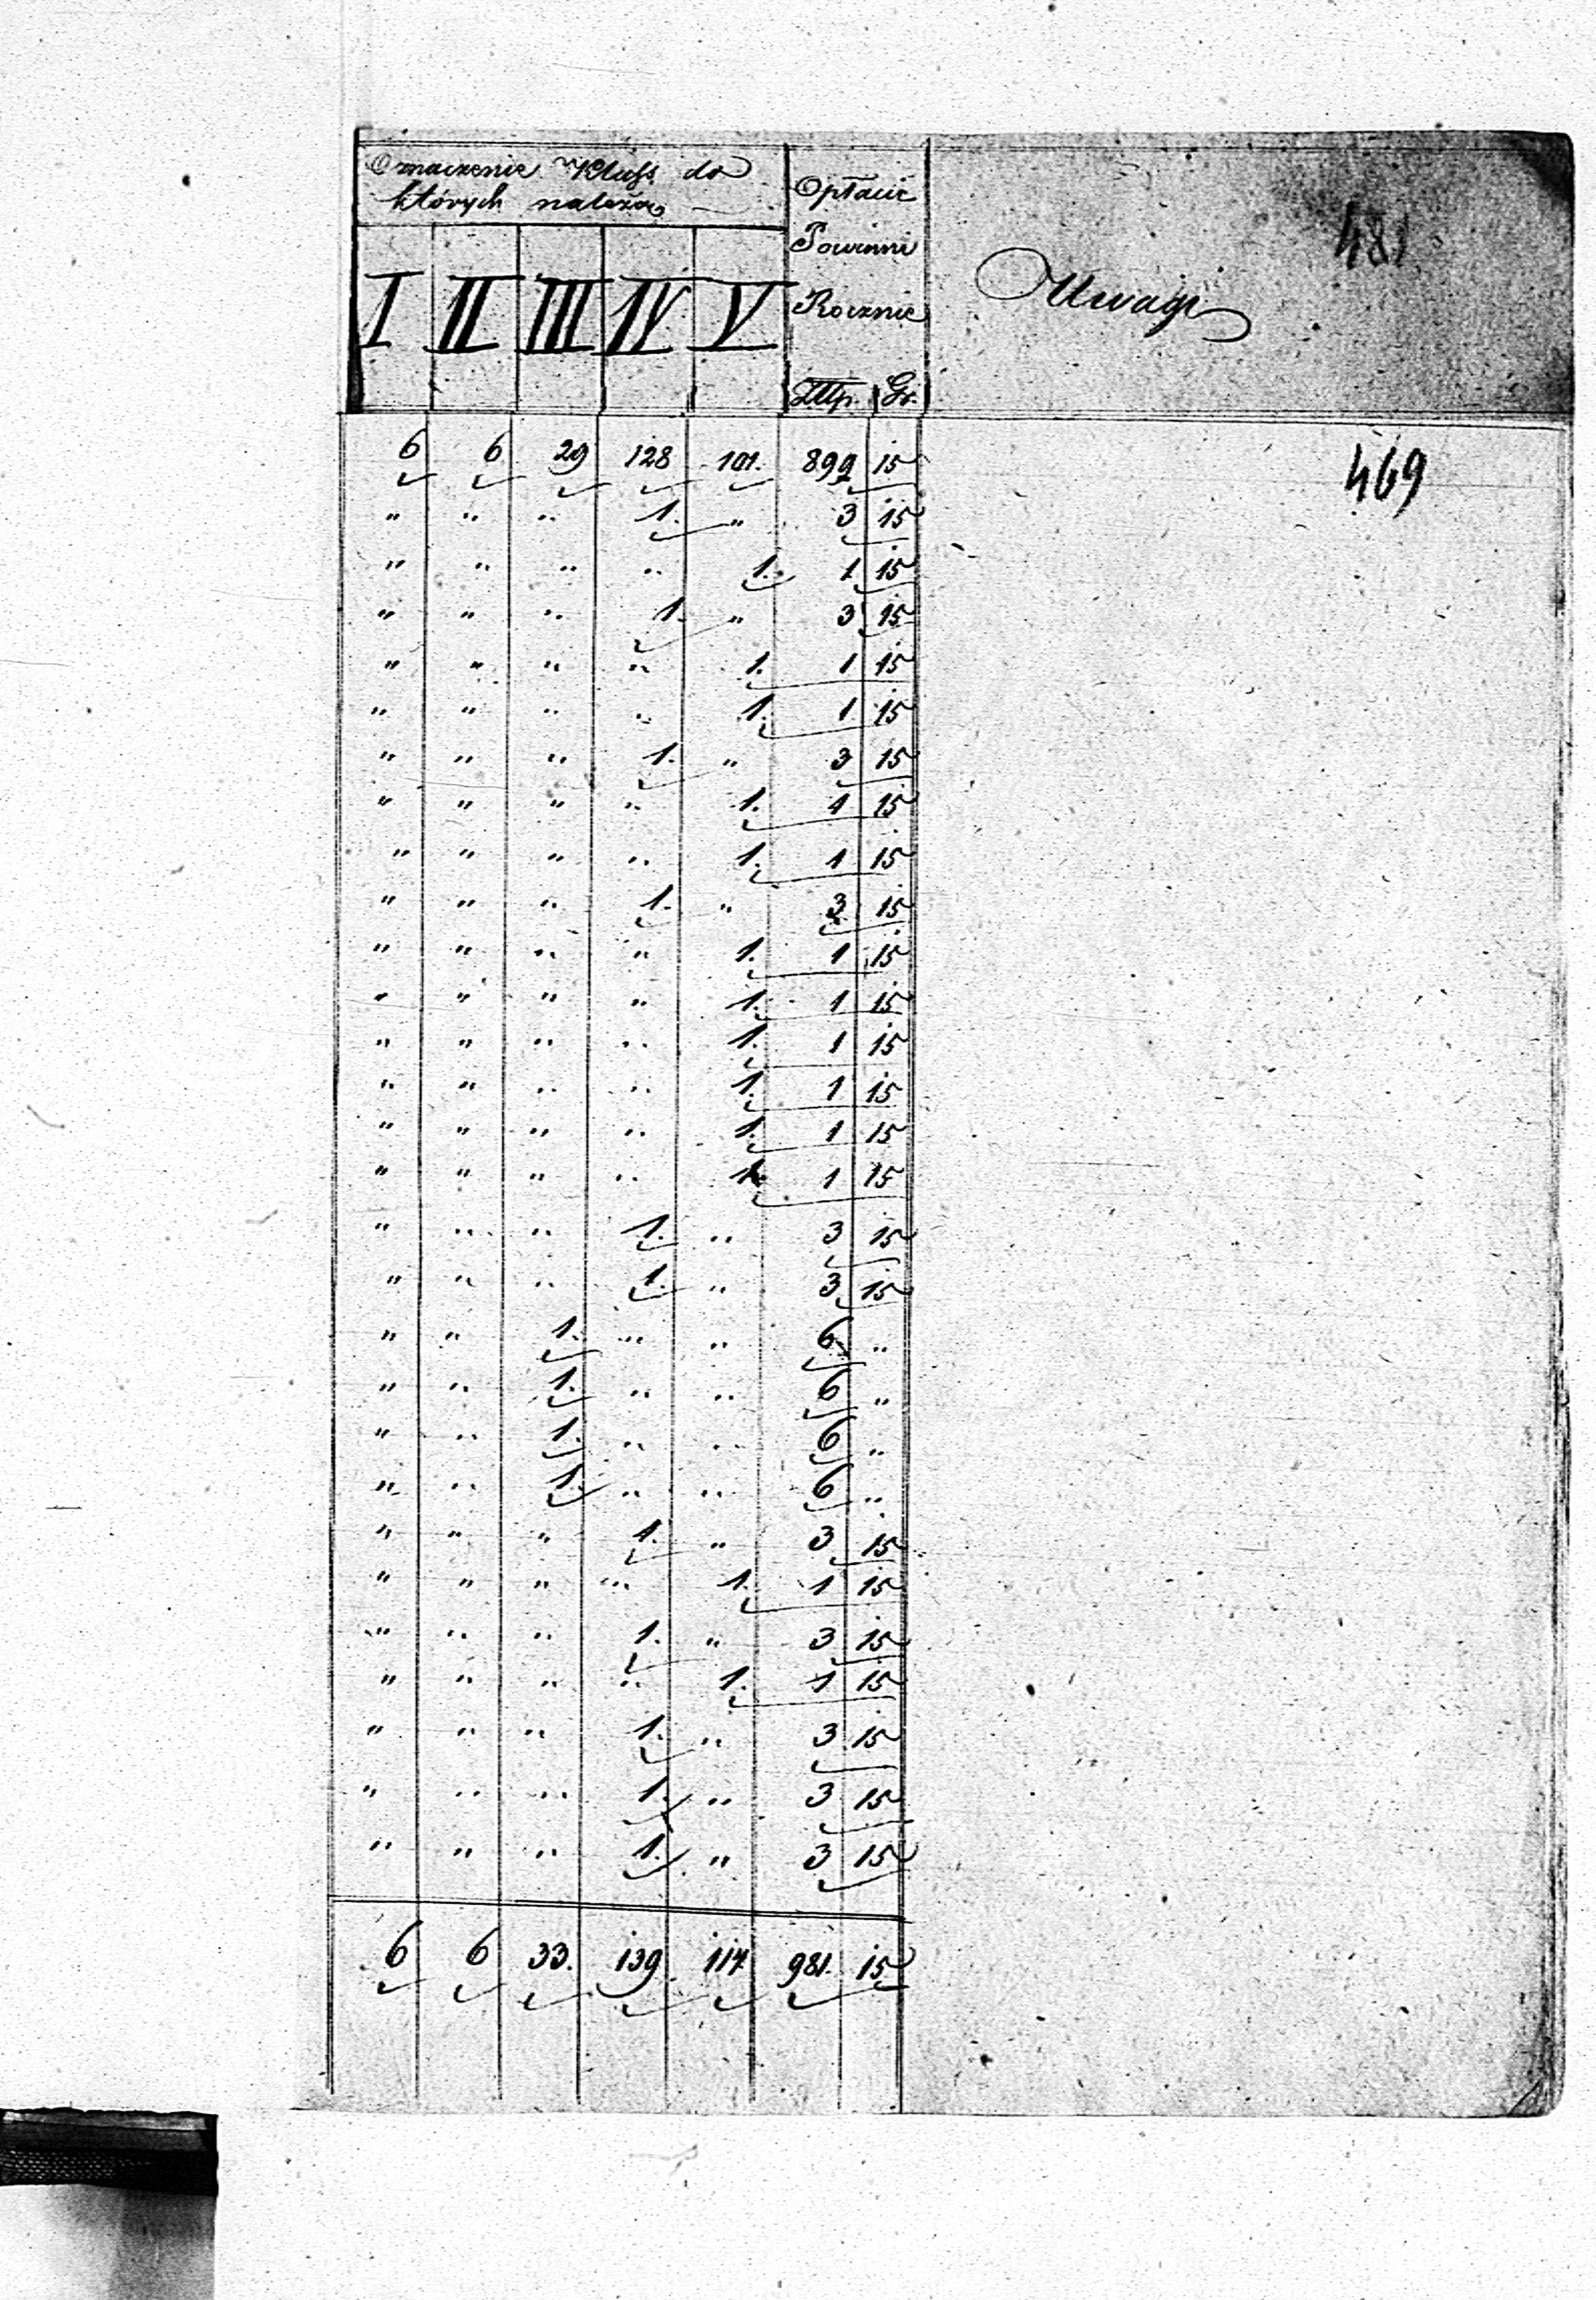 Oznaczenie Klass do
których należą
Opłacić
Powinni
Rocznie
Uwagi
481
I II III IV V
Złtp. Gr.
469
6 6 29 128 101. 899 15
" " " 1. " 3 15
" " " " 1. 1 15
" " " 1. " 3 15
" " " " 1. 1 15
" " " " 1. 1 15
" " " 1. " 3 15
" " " " 1. 1 15
" " " " 1. 1 15
" " " 1. " 3 15
" " " " 1. 1 15
" " " " 1. 1 15
" " " " 1. 1 15
" " " " 1. 1 15
" " " " 1. 1 15
" " " " 1. 1 15
" " " 1. " 3 15
" " " 1. " 3 15
" " 1. " " 6 "
" " 1. " " 6 "
" " 1. " " 6 "
" " 1. " " 6 "
" " " 1. " 3 15
" " " " 1. 1 15
" " " 1. " 3 15
" " " " 1. 1 15
" " " 1. " 3 15
" " " 1. " 3 15
" " " 1. " 3 15
6 6 33. 139 114 981. 15